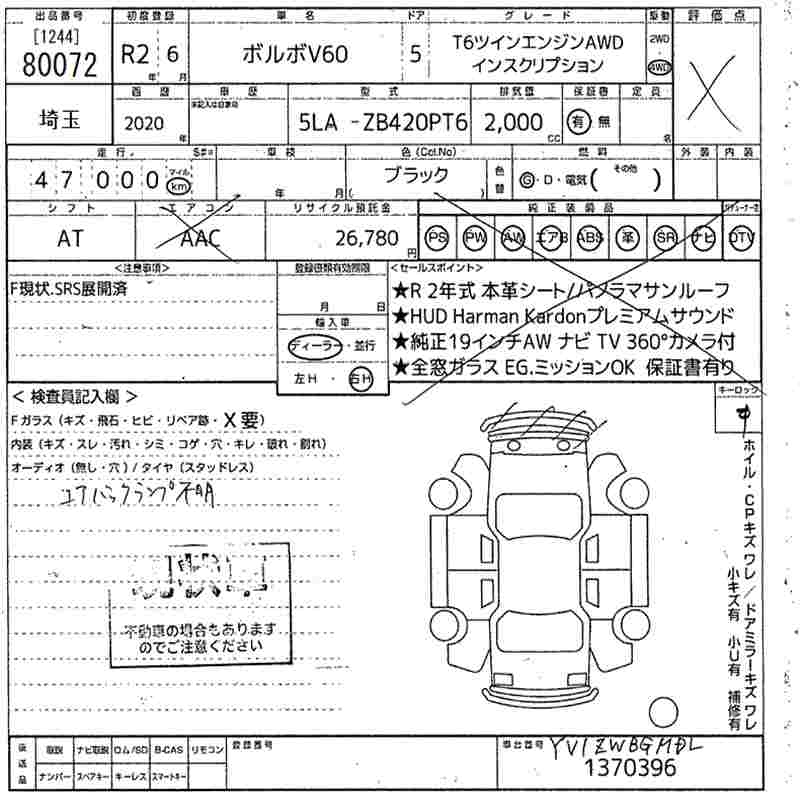 出品番号 初度登録 車名 ドア グレード 駆動 評価点
[1244]
80072 R2 6 ボルボV60 5 T6ツインエンジンAWD 2WD
年 月 インスクリプション 4WD
西暦 車歴 型式 排気量 保証書 定員
未記入は自家用
埼玉 2020 年 5LA -ZB420PT6 2,000 CC 有 無 名
走行 S#= 車検 色(Col.No) 燃料 外装 内装
47000 マイル km 年 月 ブラック ( ) 色替 G・D・電気( その他 )
シフト エアコン リサイクル預託金 純正装備品
AT AAC 26,780 円 PS PW AW エアB ABS 革 SR ナビ DTV
<注意事項> 登録書類有効期限 <セールスポイント>
F現状.SRS展開済
月 日
輸入車
ディーラー・並行
左H・右H
★R 2年式 本革シート/パノラマサンルーフ
★HUD Harman Kardonプレミアムサウンド
★純正19インチAW ナビ TV 360°カメラ付
★全窓ガラス EG.ミッションOK 保証書有り
キーロック
< 検査員記入欄 >
Fガラス(キズ・飛石・ヒビ・リペア跡・X要)
内装(キズ・スレ・汚れ・シミ・コゲ・穴・キレ・破れ・割れ)
オーディオ(無し・穴)/タイヤ(スタッドレス)
エアバックランプ不明
不動車の場合もあります
のでご注意ください
ホイル・CPキズ ワレ / ドアミラーキズ ワレ
小キズ有 小U有 補修有
後送品 取説 ナビ取説 ロム/SD B-CAS リモコン 登録番号 車台番号 YV1ZWBGMDL
ナンバー スペアキー キーレス スマートキー 1370396